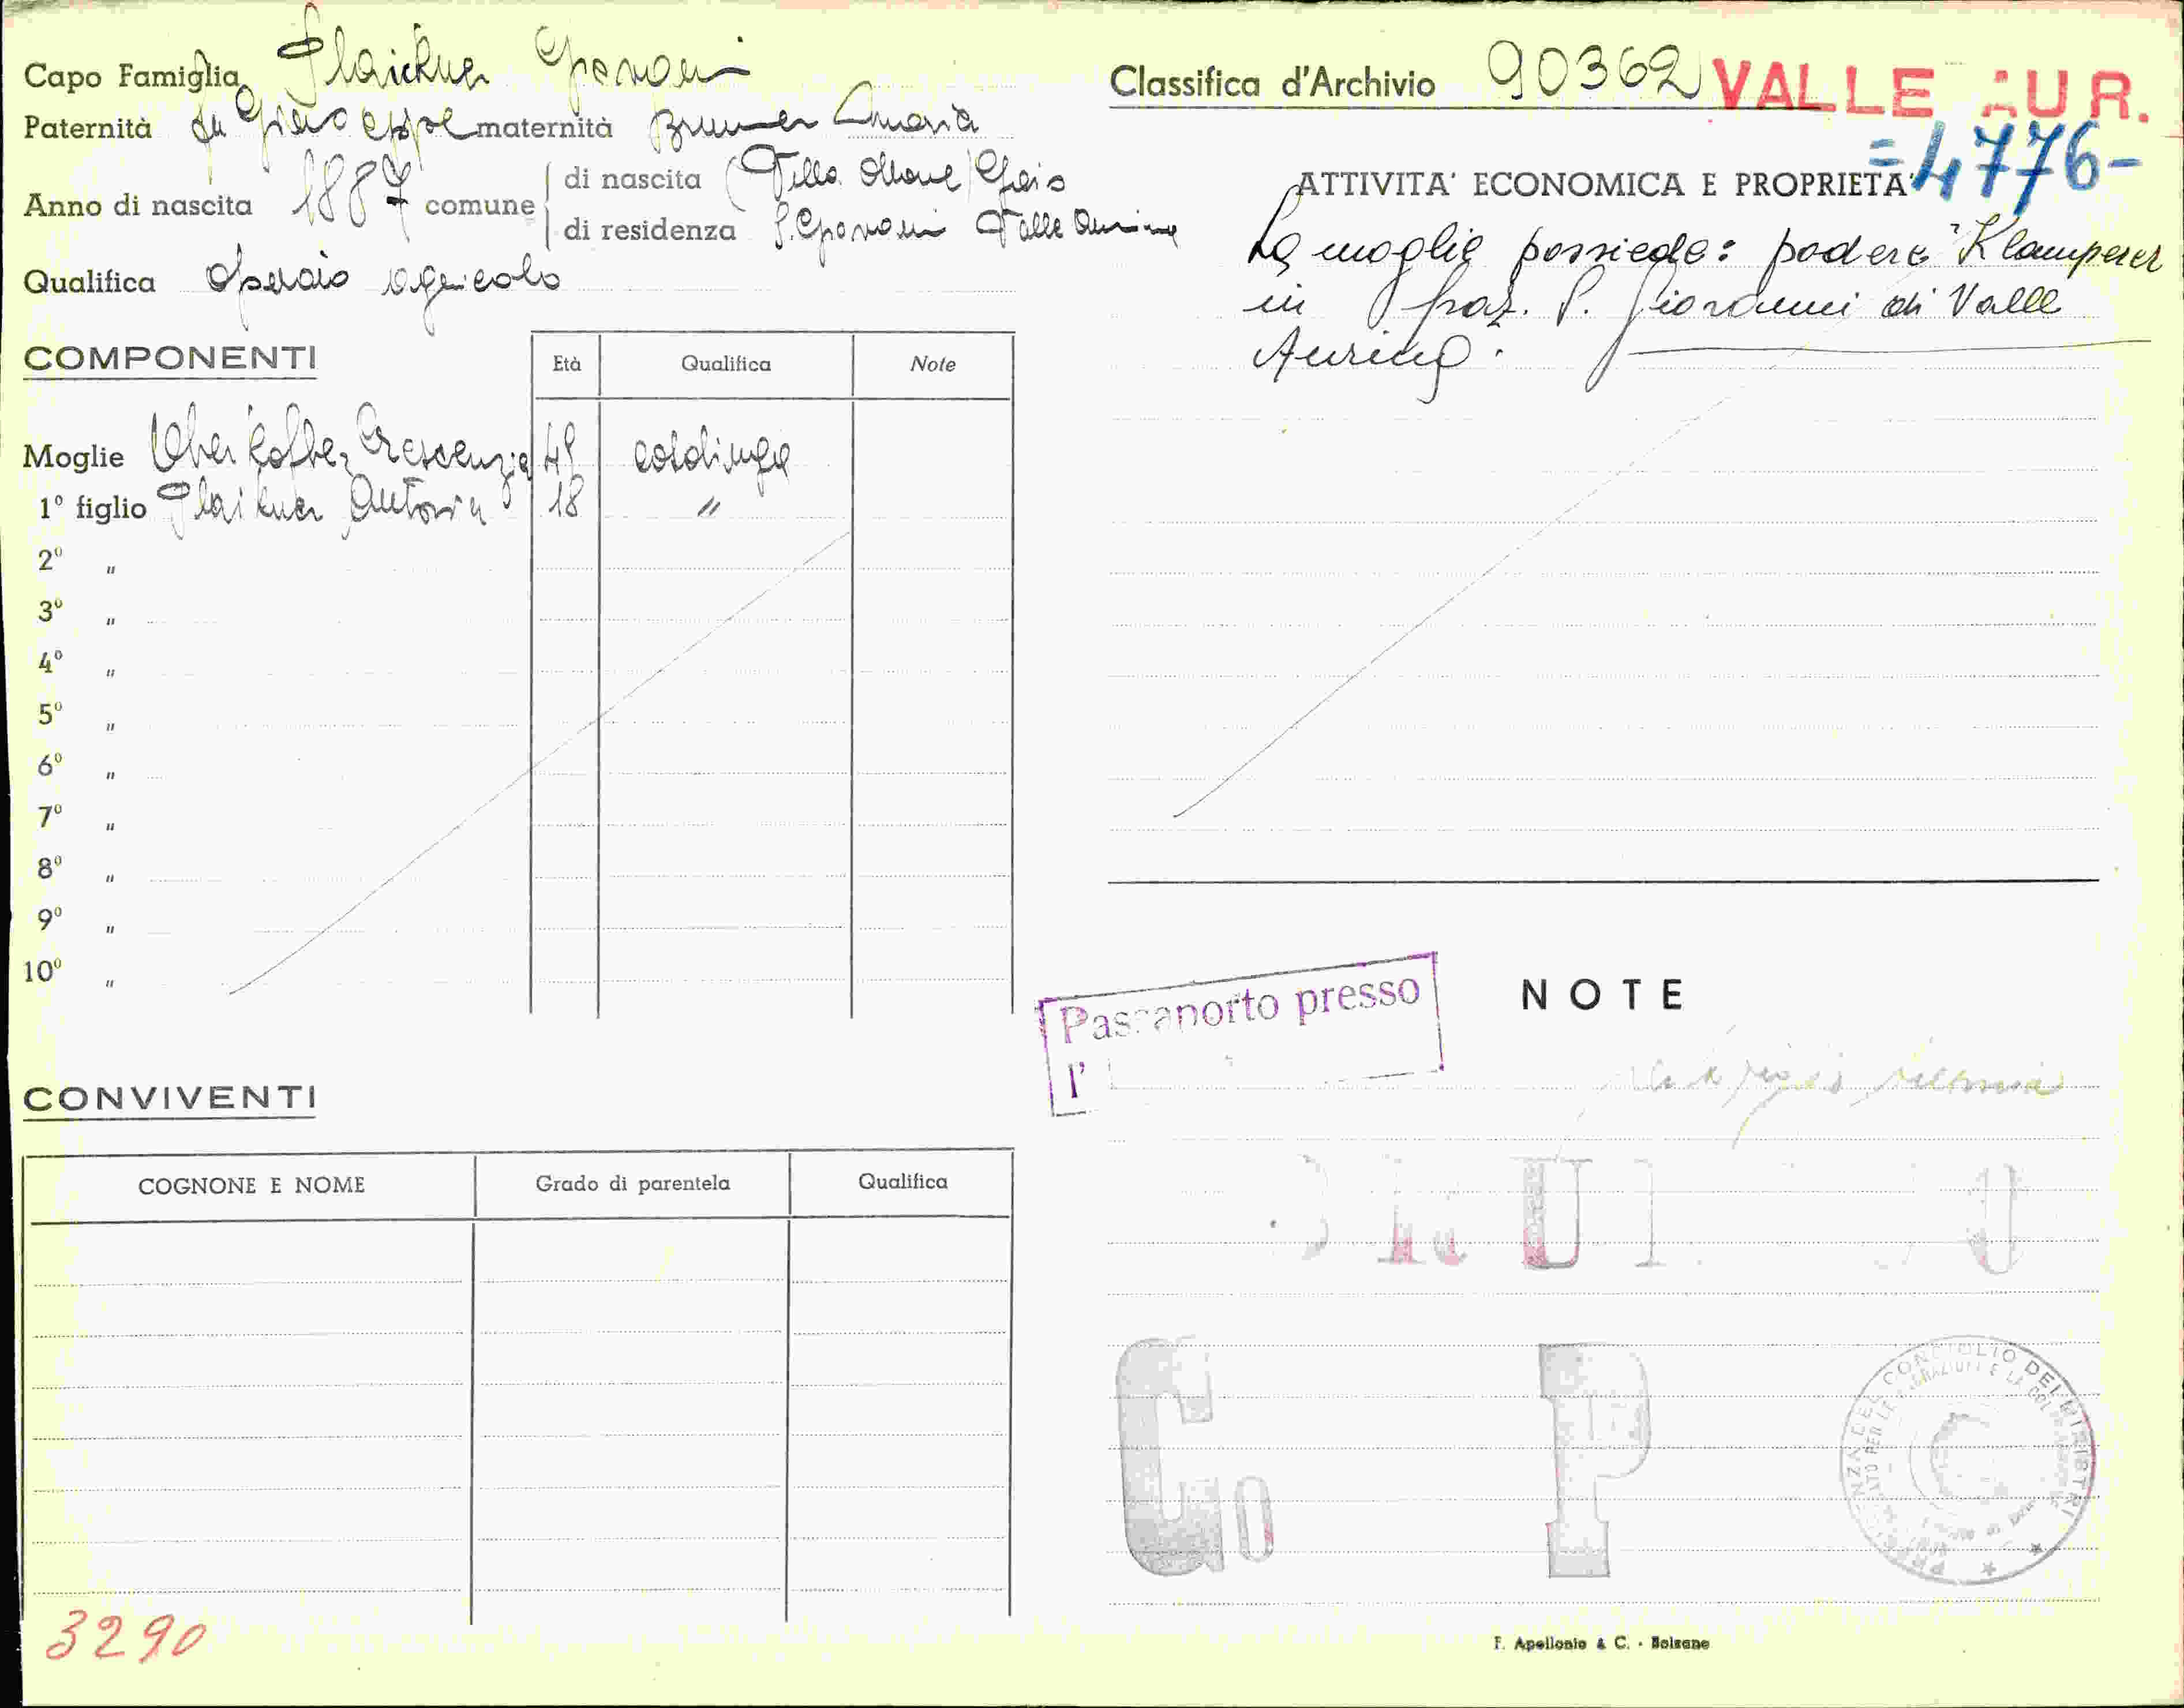 Capo Famiglia Plaickner Giovanni
Paternità fu Giuseppe maternità Brunner Maria
Anno di nascita 1887 comune di nascita (Villa Gais
di residenza S. Giovanni Valle Aurina
Qualifica Operaio agricolo
COMPONENTI
Età Qualifica Note
Moglie Oberkofler Crescenzia 49 casalinga
1° figlio Plaikner Antonia 18 "
2° "
3° "
4° "
5° "
6° "
7° "
8° "
9° "
10° "
CONVIVENTI
COGNONE E NOME Grado di parentela Qualifica
3290
Classifica d'Archivio 90362 VALLE AUR.
=4776-
ATTIVITA' ECONOMICA E PROPRIETA'
La moglie possiede: podere "Klamperer
in fraz. S. Giovanni di Valle
Aurina.
Passaporto presso
l'
NOTE
Go P
PRESIDENZA DEL CONSIGLIO DEI MINISTRI
F. Apollonio & C. - Bolzano